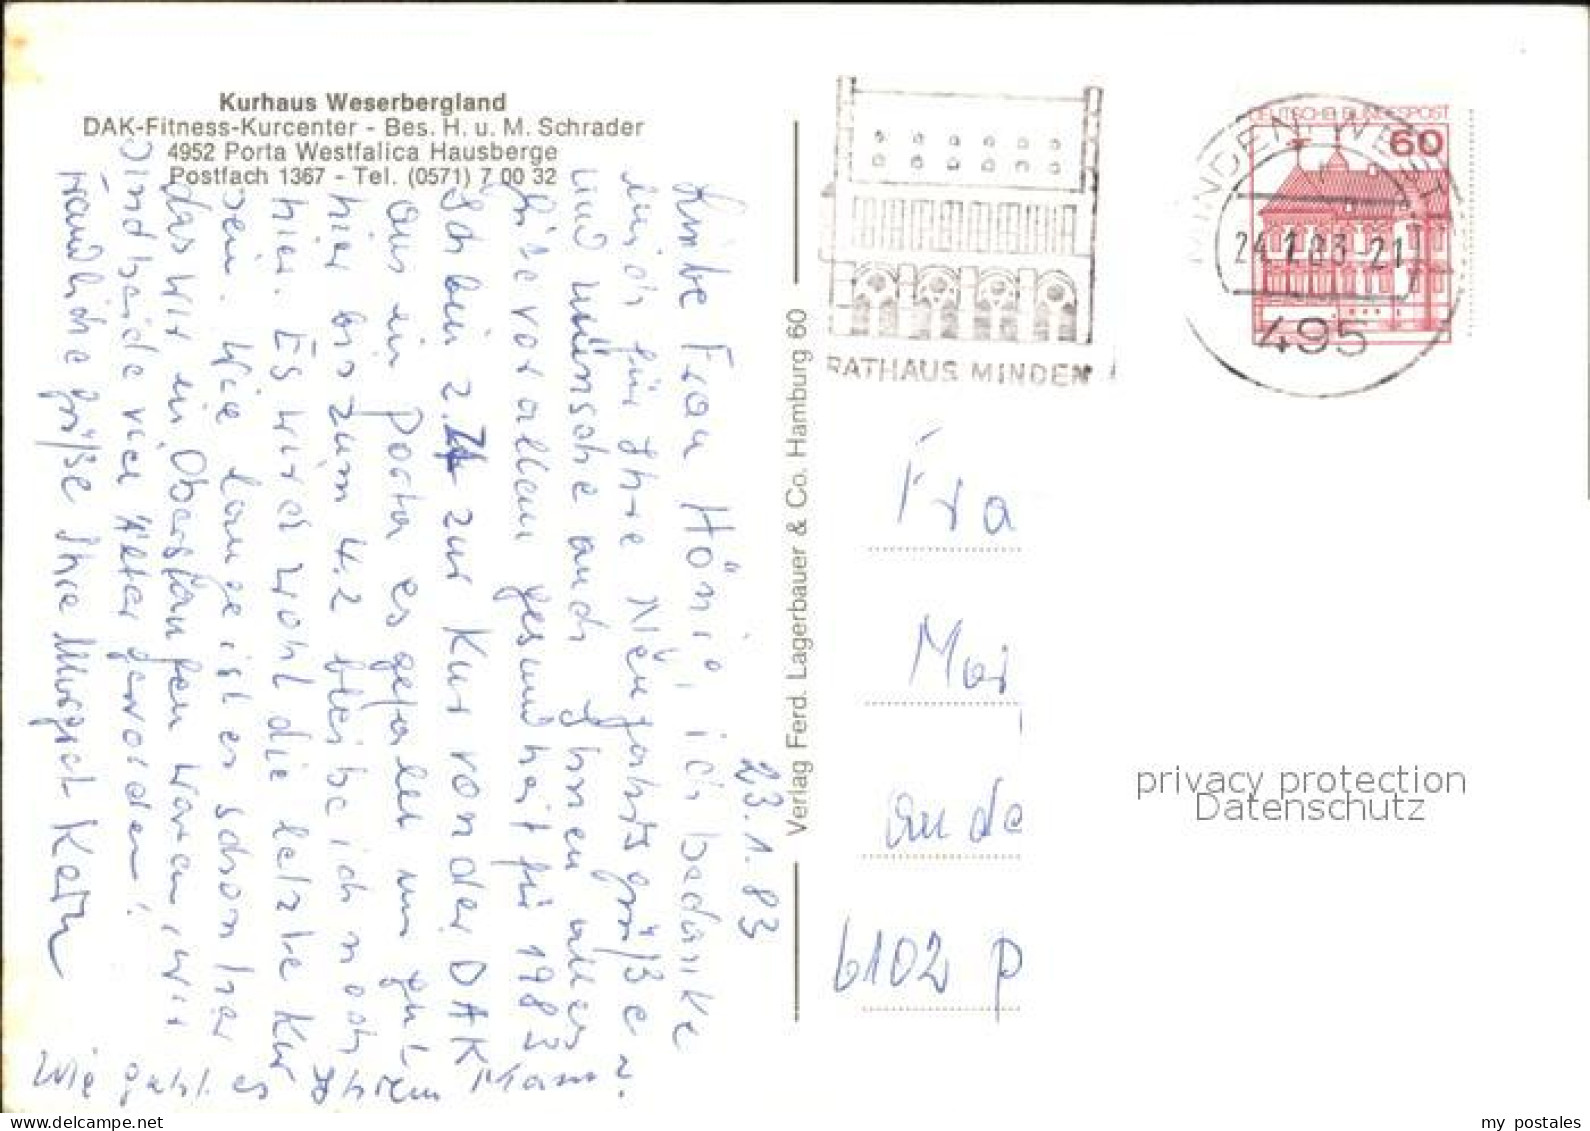 Kurhaus Weserbergland
DAK-Fitness-Kurcenter - Bes. H. u. M. Schrader
4952 Porta Westfalica Hausberge
Postfach 1367 - Tel. (0571) 7 00 32
23.1.83
Liebe Frau Höni, ich bedanke
mich für Ihre Neujahrsgrüße
und wünsche auch Ihnen alles
liebe vor allem gesundheit für 1983
Ich bin z.Z. zur Kur von der DAK
aus in Porta es gefällt mir gut
hier bis zum 4.2 bleibe ich noch
hier. Es wird wohl die letzte Kur
sein. Wie lange ist es schon her
das wir in Oberstaufen waren, wir
sind beide viel älter geworden!
Freundliche grüße Ihre Margret Keth
Wie geht es Ihrem Mann?
Verlag Ferd. Lagerbauer & Co. Hamburg 60
RATHAUS MINDEN
DEUTSCHE BUNDESPOST
60
MINDEN, WESTF
24.1.83-21
495
Fra
Mai
an de
6102 P
privacy protection
Datenschutz
my_postales